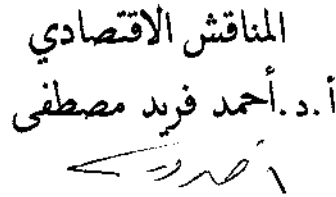 المناقش الاقتصادي
أ.د.أحمد فريد مصطفى